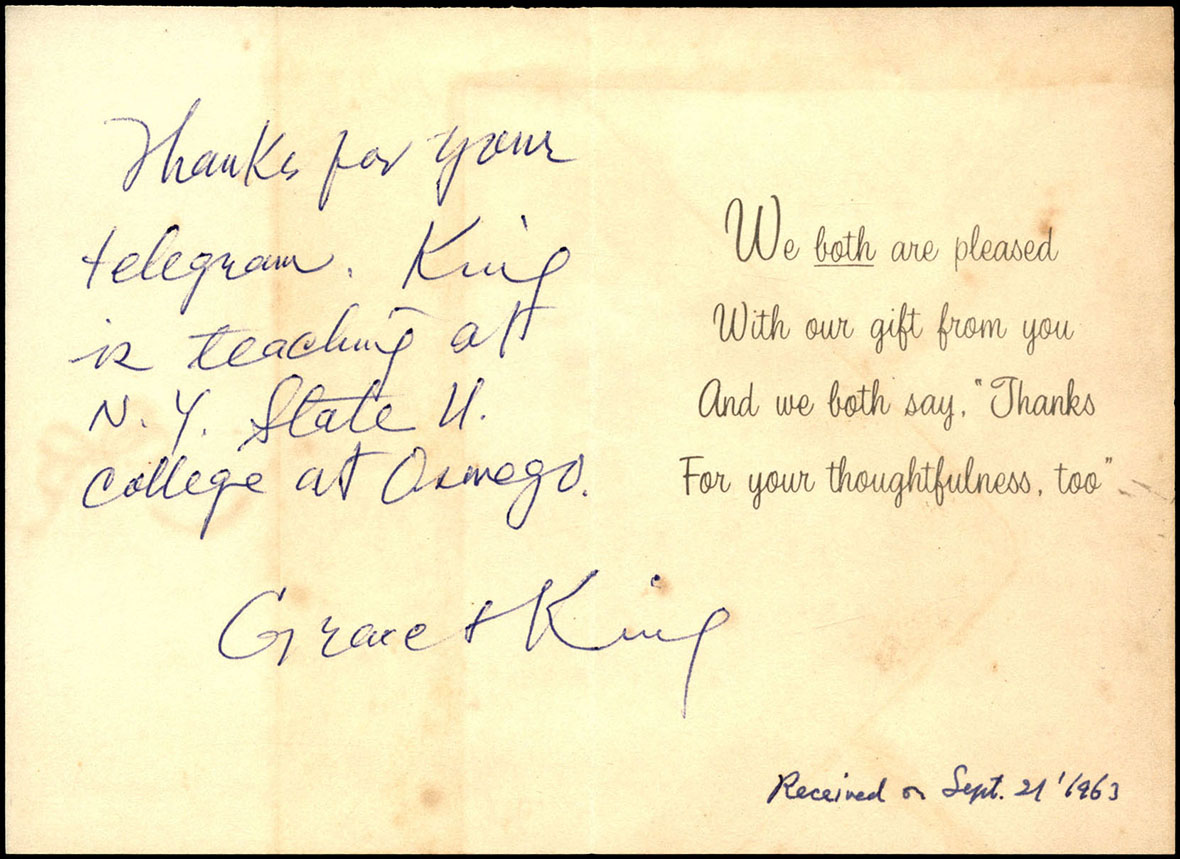 Thanks for your
telegram. King
is teaching at
N.Y. State U.
college at Oswego.
Grace + King
We both are pleased
With our gift from you
And we both say, "Thanks
For your thoughtfulness, too"
Received on Sept. 21 '1963